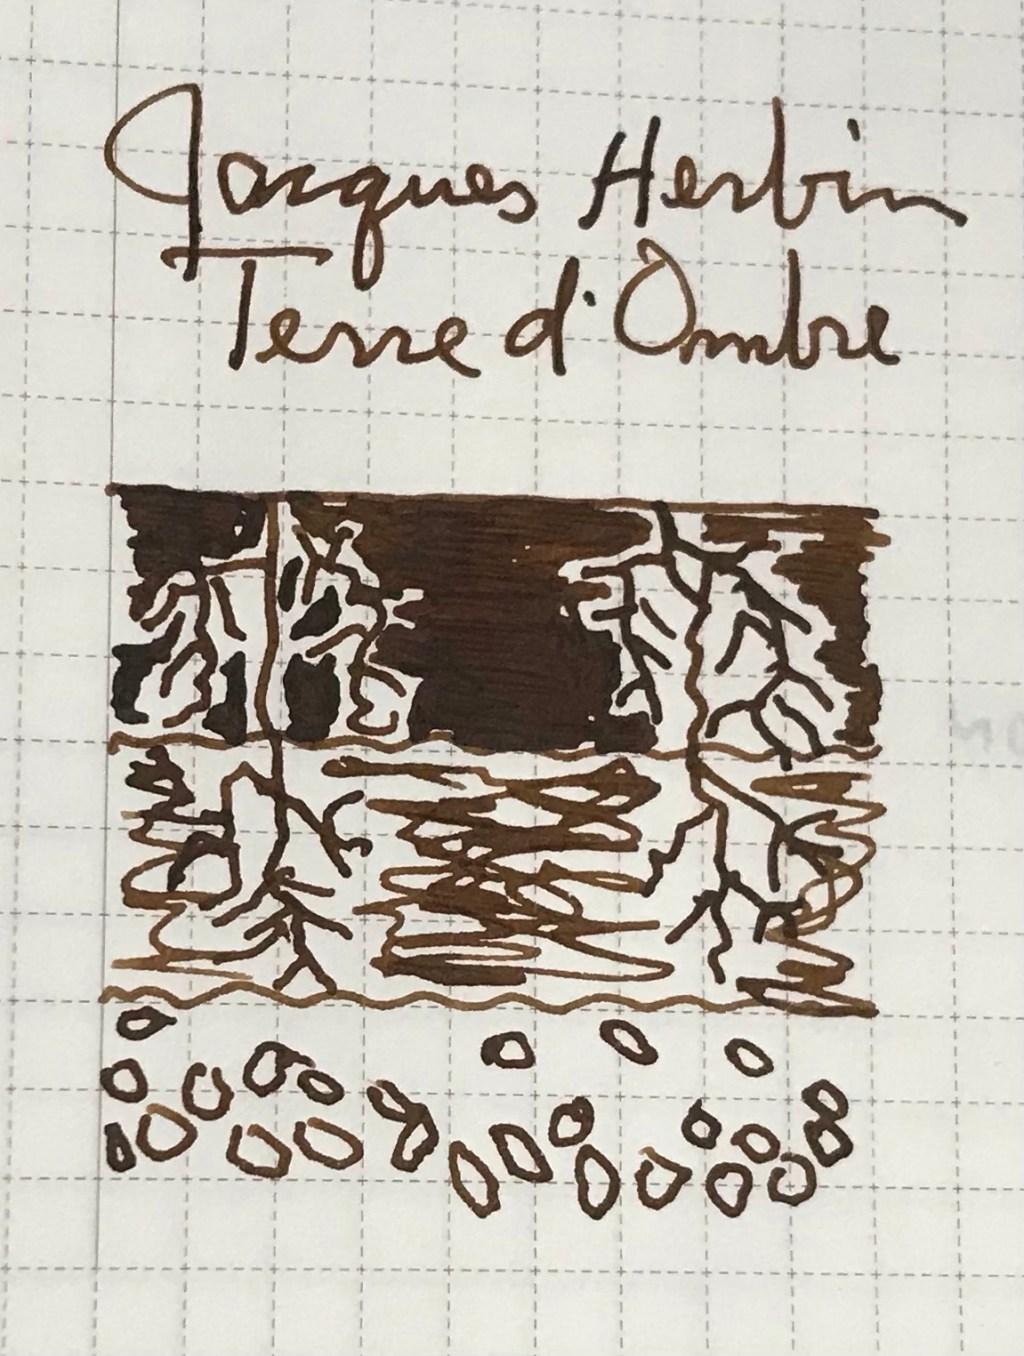 Jacques Herbin
Terre d'Ombre